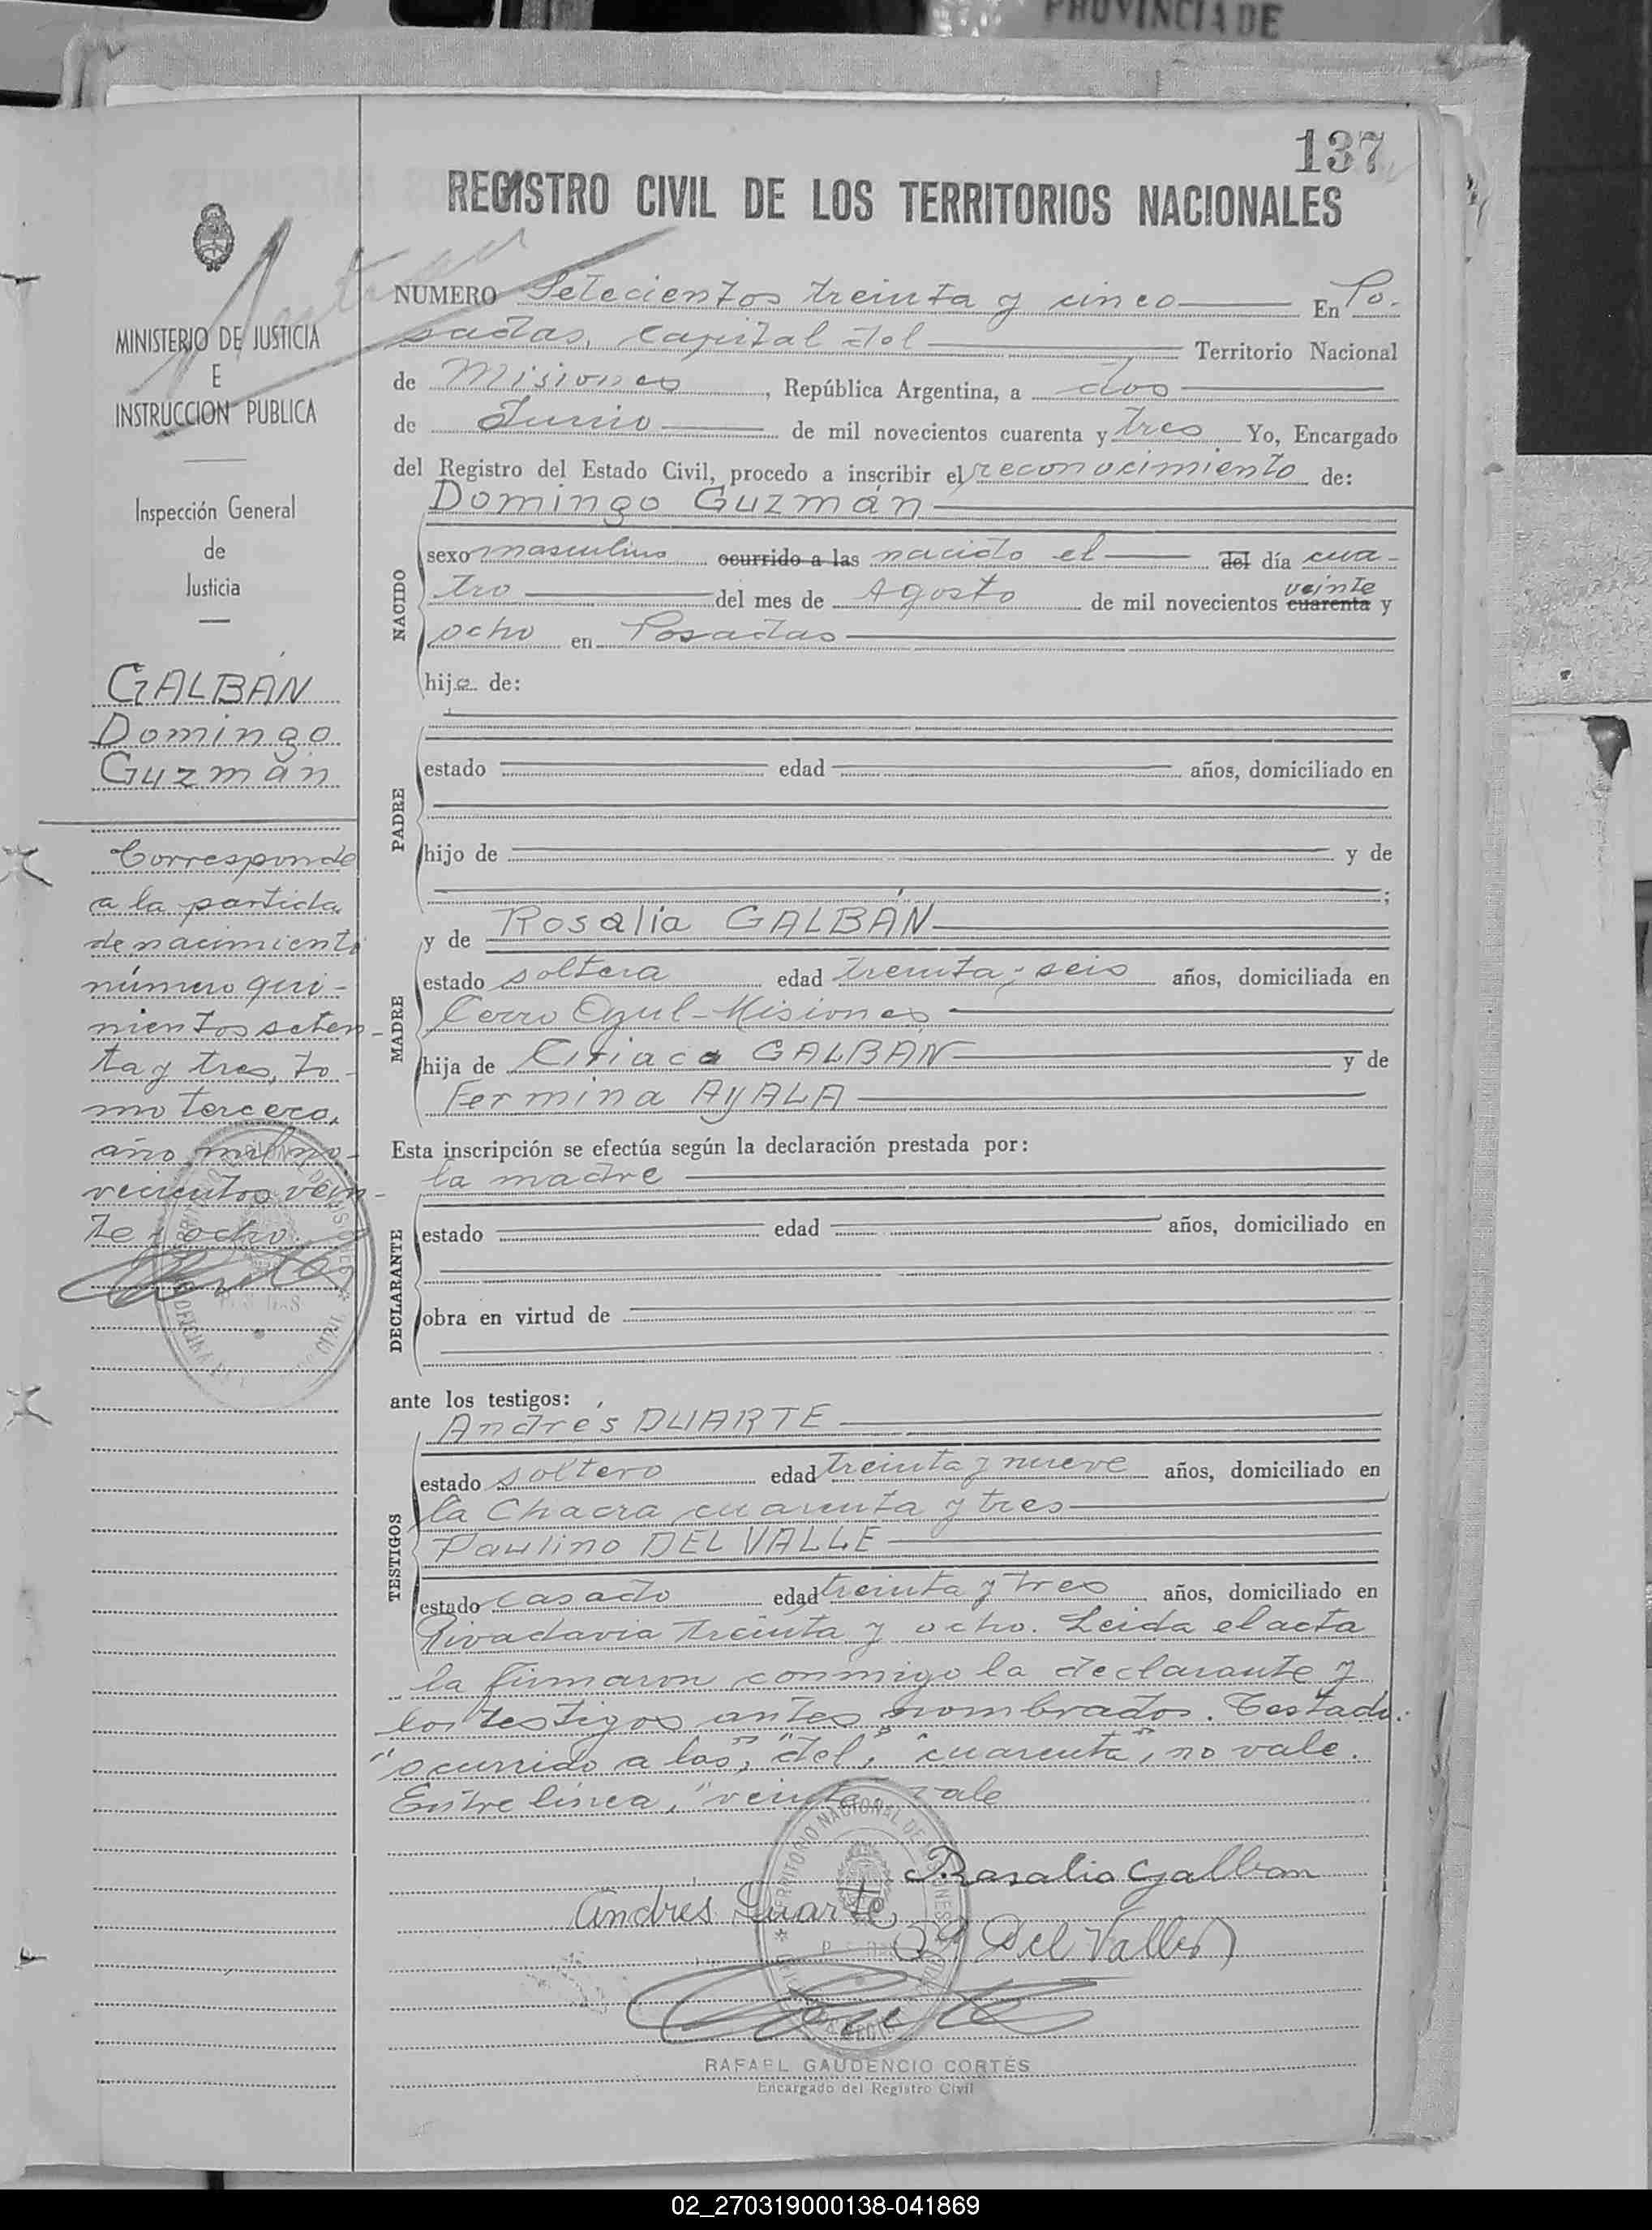 PROVINCIA DE
137
REGISTRO CIVIL DE LOS TERRITORIOS NACIONALES
MINISTERIO DE JUSTICIA
E
INSTRUCCION PUBLICA
Inspección General
de
Justicia
GALBÁN
Domingo
Guzmán
Corresponde
a la partida
de nacimiento
número qui-
nientos seten-
ta y tres, to-
mo tercero,
año mil no-
vecientos vein-
te y ocho.
NUMERO Setecientos treinta y cinco En Po-
sadas, capital del Territorio Nacional
de Misiones, República Argentina, a dos
de Junio de mil novecientos cuarenta y tres Yo, Encargado
del Registro del Estado Civil, procedo a inscribir el reconocimiento de:
Domingo Guzmán
NACIDO
sexo masculino ocurrido a las nacido el del día cua-
tro del mes de Agosto de mil novecientos cuarenta veinte y
ocho en Posadas
hijo de:
PADRE
estado edad años, domiciliado en
hijo de y de
;
MADRE
y de Rosalía GALBÁN
estado soltera edad treinta y seis años, domiciliada en
Cerro Azul-Misiones
hija de Ciriaco GALBÁN y de
Fermina AYALA
Esta inscripción se efectúa según la declaración prestada por:
la madre
DECLARANTE
estado edad años, domiciliado en
obra en virtud de
ante los testigos:
TESTIGOS
Andrés DUARTE
estado soltero edad treinta y nueve años, domiciliado en
la Chacra cuarenta y tres
Paulino DEL VALLE
estado casado edad treinta y tres años, domiciliado en
Rivadavia treinta y ocho. Leida el acta
la firmaron conmigo la declarante y
los testigos antes nombrados. Testado:
"ocurrido a las", "del", "cuarenta", no vale.
Entre línea, "veinte" vale
Rosalia Galban
Andres Duarte
P. Del Valle
RAFAEL GAUDENCIO CORTÉS
Encargado del Registro Civil
02_270319000138-041869